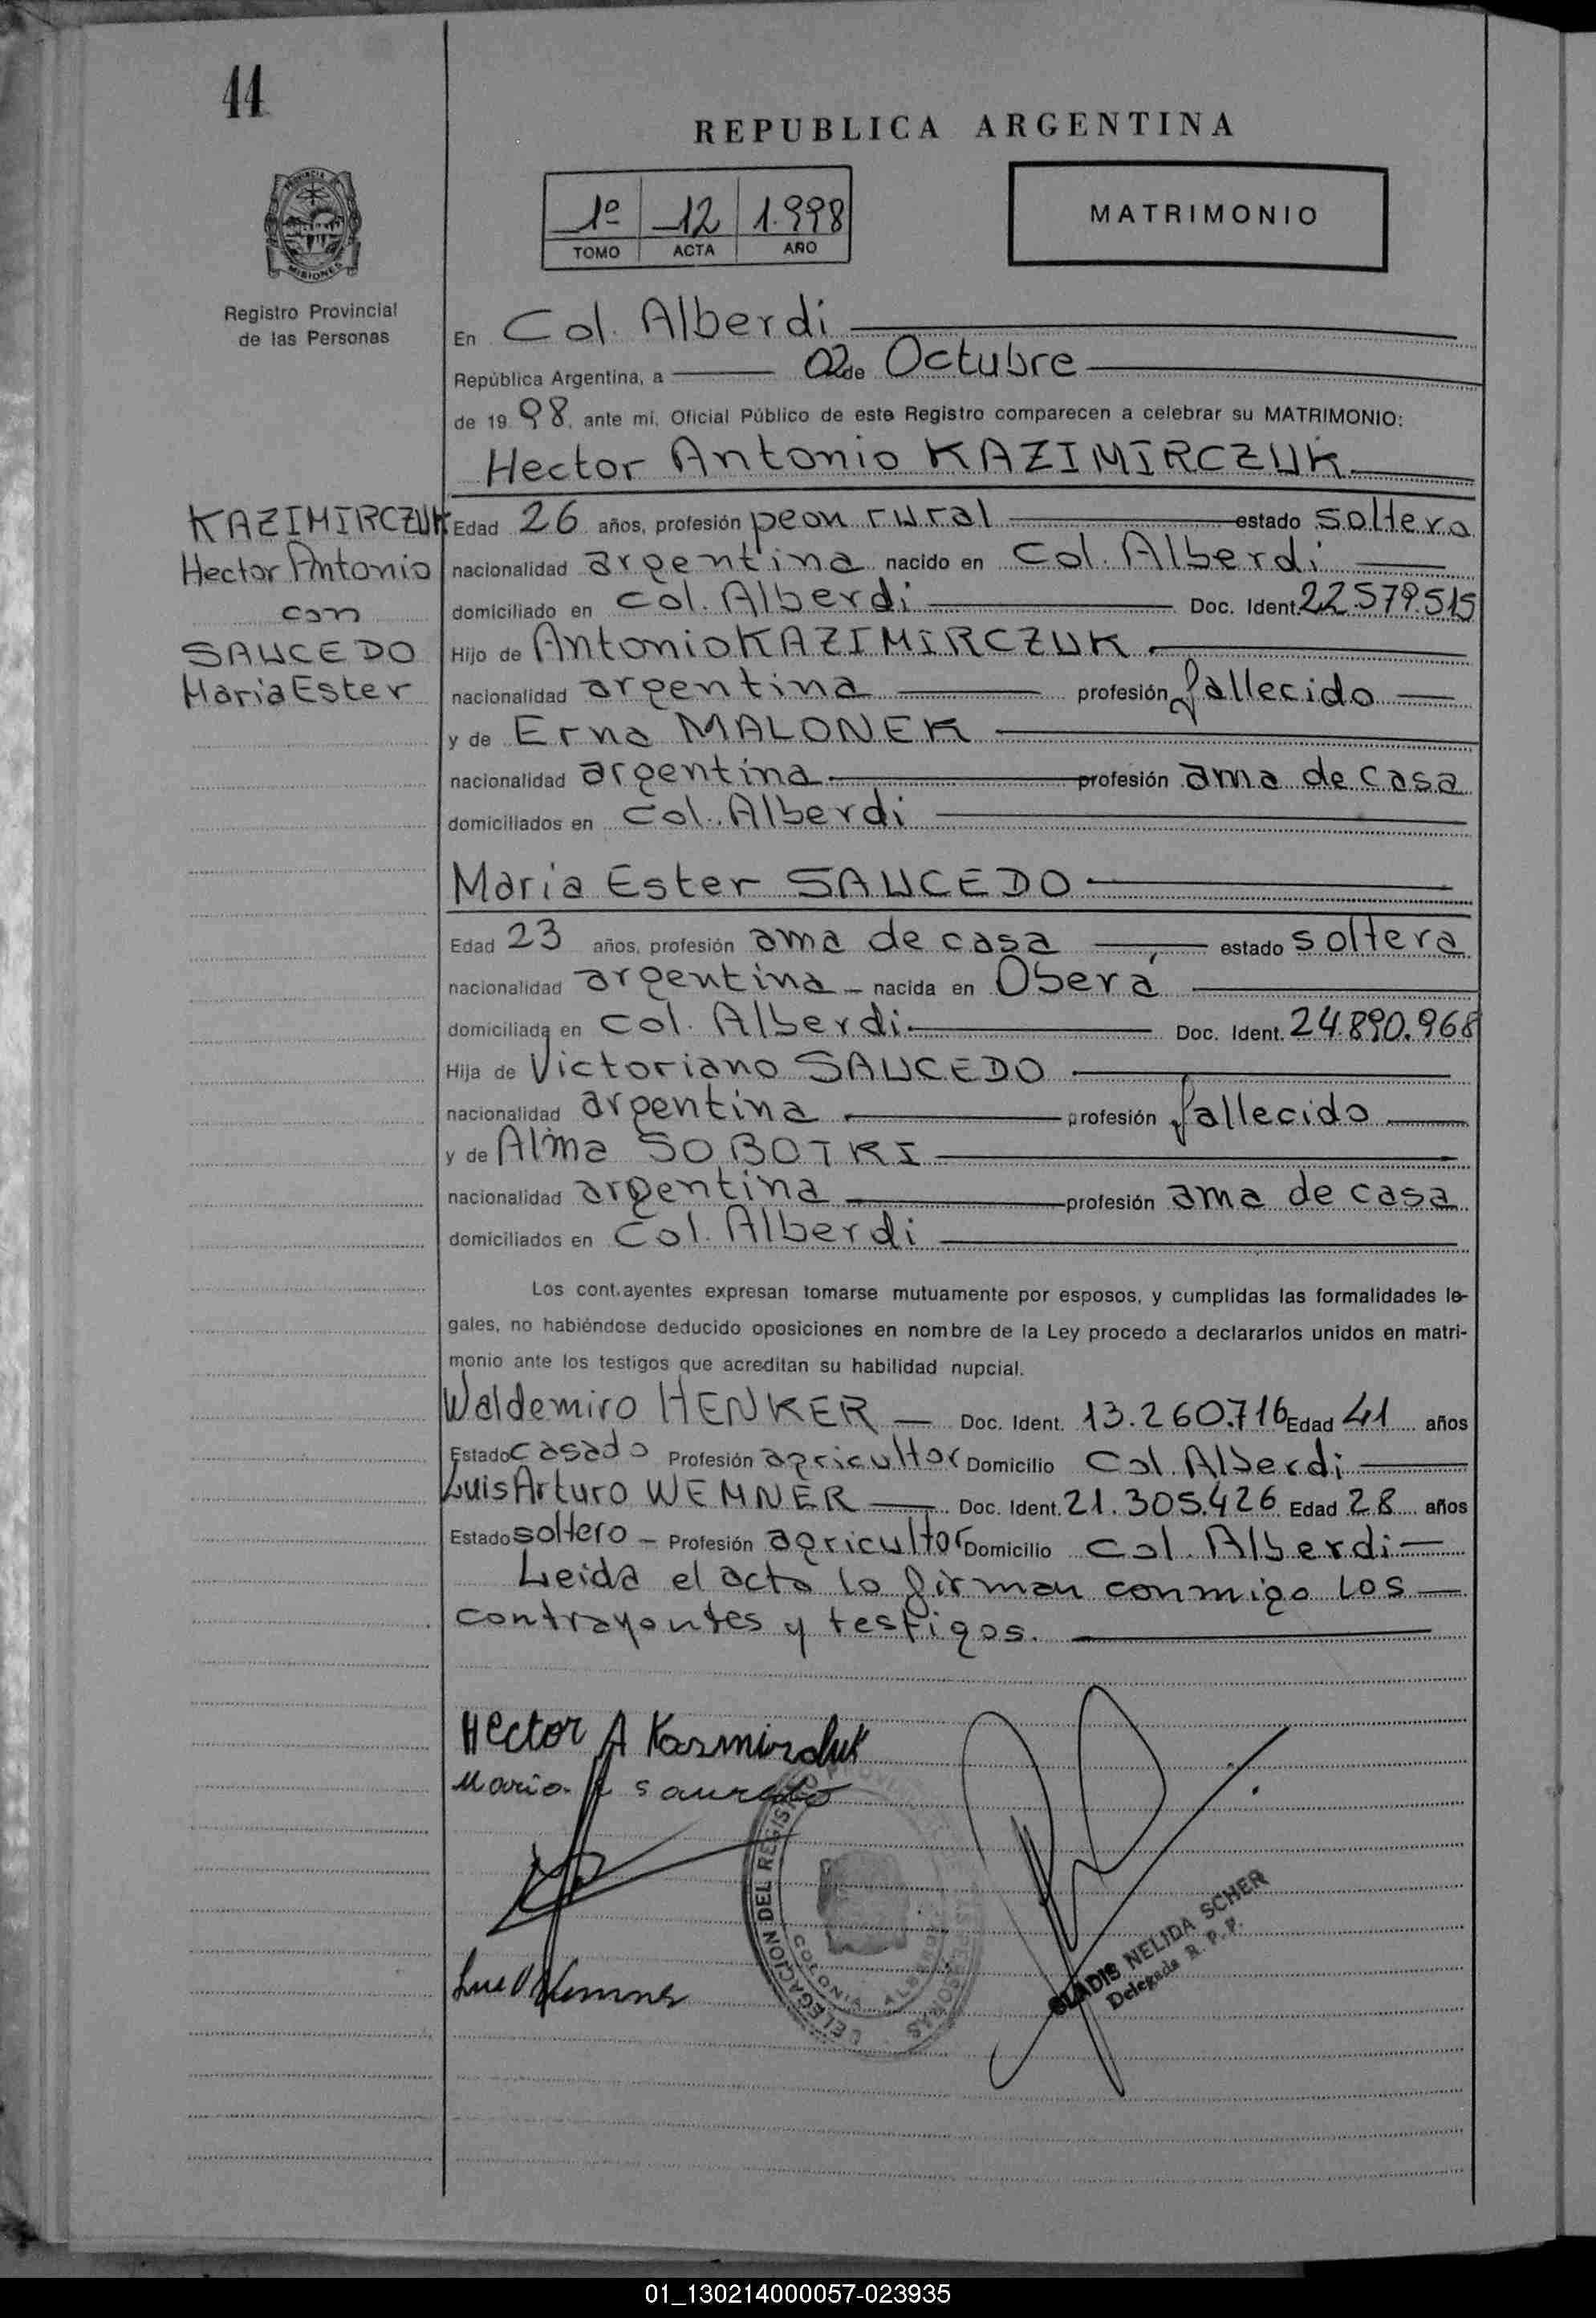 44
REPUBLICA ARGENTINA
PROVINCIA DE
MISIONES
Registro Provincial
de las Personas
1º 12 1.998
TOMO ACTA AÑO
MATRIMONIO
En Col. Alberdi
República Argentina, a 02 de Octubre
de 19 98, ante mí, Oficial Público de este Registro comparecen a celebrar su MATRIMONIO:
Hector Antonio KAZIMIRCZUK
KAZIMIRCZUK
Hector Antonio
con
SAUCEDO
Maria Ester
Edad 26 años, profesión peon rural estado soltero
nacionalidad argentina nacido en Col. Alberdi
domiciliado en Col. Alberdi Doc. Ident. 22.579.515
Hijo de Antonio KAZIMIRCZUK
nacionalidad argentina profesión fallecido
y de Erna MALONEK
nacionalidad argentina profesión ama de casa
domiciliados en Col. Alberdi
Maria Ester SAUCEDO
Edad 23 años, profesión ama de casa estado soltera
nacionalidad argentina nacida en Oberá
domiciliada en Col. Alberdi Doc. Ident. 24.890.968
Hija de Victoriano SAUCEDO
nacionalidad argentina profesión fallecido
y de Alma SOBOTKI
nacionalidad argentina profesión ama de casa
domiciliados en Col. Alberdi
Los cont.ayentes expresan tomarse mutuamente por esposos, y cumplidas las formalidades le-
gales, no habiéndose deducido oposiciones en nombre de la Ley procedo a declararlos unidos en matri-
monio ante los testigos que acreditan su habilidad nupcial.
Waldemiro HENKER Doc. Ident. 13.260.716 Edad 41 años
Estado casado Profesión agricultor Domicilio Col. Alberdi
Luis Arturo WEMNER Doc. Ident. 21.305.426 Edad 28 años
Estado soltero Profesión agricultor Domicilio Col. Alberdi
Leida el acta lo firman conmigo los
contrayentes y testigos.
Hector A Kazmirczuk
Maria E Saucedo
DELEGACION DEL REGISTRO
COLONIA ALBERDI
MISIONES
GLADIS NELIDA SCHER
Delegada R. P. P.
01_130214000057-023935